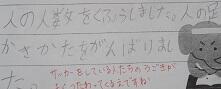 人の人数をくふうしました。人の足
かさかたをがんばりまし
た。
サッカーをしている人たちのうごきが
よくつたわってくるえですね!